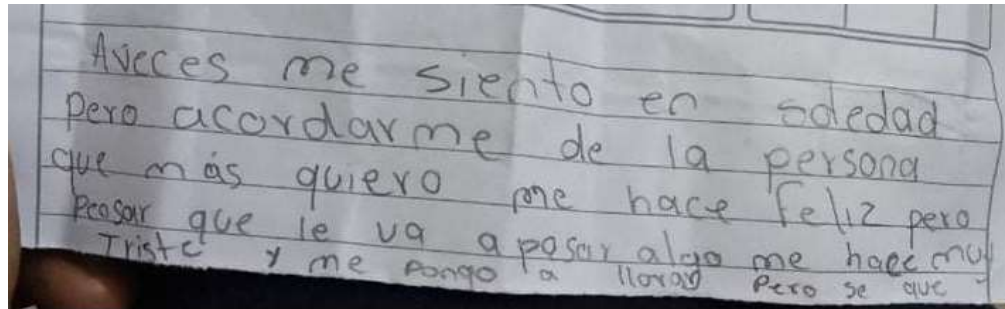 Aveces me siento en soledad
pero acordarme de la persona
que más quiero me hace feliz pero
Pensar que le va a pasar algo me hace muy
Triste y me pongo a llorar Pero se que